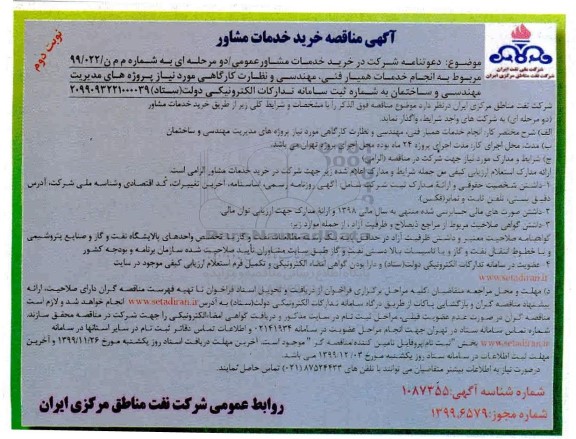 آگهی مناقصه خرید خدمات مشاور
نوبت دوم
شرکت ملی نفت ایران
شرکت نفت مناطق مرکزی ایران
موضوع: دعوتنامه شرکت در خرید خدمات مشاور عمومی/دو مرحله ای به شماره م م ن/۹۹/۰۲۲
مربوط به انجام خدمات همیار فنی، مهندسی و نظارت کارگاهی مورد نیاز پروژه های مدیریت
مهندسی و ساختمان به شماره ثبت سامانه تدارکات الکترونیکی دولت(ستاد)۲۰۹۹۰۹۳۲۲۱۰۰۰۰۳۹
شرکت نفت مناطق مرکزی ایران درنظر دارد موضوع مناقصه فوق الذکر را با مشخصات و شرایط کلی زیر از طریق خرید خدمات مشاور
(دو مرحله ای) به شرکت های واجد شرایط، واگذار نماید.
الف) شرح مختصر کار: انجام خدمات همیار فنی، مهندسی و نظارت کارگاهی مورد نیاز پروژه های مدیریت مهندسی و ساختمان
ب) مدت، محل اجرای کار: مدت اجرای پروژه ۲۴ ماه بوده محل اجرای پروژه تهران می باشد.
ج) شرایط و مدارک مورد نیاز جهت شرکت در مناقصه (الزامی):
ارائه مدارک استعلام ارزیابی کیفی من جمله شرایط و مدارک اعلام شده زیر جهت شرکت در خرید خدمات مشاور الزامی است
۱- داشتن شخصیت حقوقی و ارائه مدارک ثبت شرکت شامل آگهی روزنامه رسمی، اساسنامه، آخرین تغییرات، کد اقتصادی وشناسه ملی شرکت، آدرس
دقیق پستی، تلفن ثابت و نمابر(فکس)
۲-داشتن صورت های مالی حسابرسی شده منتهی به سال مالی ۱۳۹۸ و ارائه مدارک جهت ارزیابی توان مالی.
۳-داشتن گواهی صلاحیت مربوط از مراجع ذیصلاح و ظرفیت آزاد، از جمله موارد زیر:
گواهینامه صلاحیت معتبر و داشتن ظرفیت آزاد در حداقل پایه
و یا خطوط انتقال نفت و گاز و یا تاسیسات بالا دستی نفت و گاز طبق سایت مشاوران تأیید صلاحیت شده سازمان برنامه و بودجه کشور
۴- عضویت در سامانه تدارکات الکترونیکی دولت(ستاد) و دارا بودن گواهی امضاء الکترونیکی و تکمیل فرم استعلام ارزیابی کیفی موجود در سایت
www.setadiran.ir
د) مهلت و محل مراجعه متقاضیان: کلیه مراحل برگزاری فراخوان از دریافت و تحویل اسناد فراخوان تا تهیه فهرست مناقصه گران دارای صلاحیت، ارائه
پیشنهاد مناقصه گران و بازگشایی پاکات از طریق درگاه سامانه تدارکات الکترونیکی دولت(ستاد) به آدرس www.setadiran.ir انجام خواهد شد و لازم است
مناقصه گران در صورت عدم عضویت قبلی، مراحل ثبت نام در سایت مذکور و دریافت گواهی امضاء الکترونیکی را جهت شرکت در مناقصه محقق سازند.
شماره تماس سامانه ستاد در تهران جهت انجام مراحل عضویت در سامانه ۰۲۱۴۱۹۳۴ و اطلاعات تماس دفاتر ثبت نام در سایر استانها در سامانه
www.setadiran.ir بخش "ثبت نام/پروفایل تامین کننده/مناقصه گر" موجود است. آخرین مهلت دریافت اسناد روز یکشنبه مورخ ۱۳۹۹/۱۱/۲۶ و آخرین
مهلت ثبت اطلاعات در سامانه ستاد روز یکشنبه مورخ ۱۳۹۹/۱۲/۰۳ می باشد.
درصورت نیاز به اطلاعات بیشتر متقاضیان می توانند با تلفن های ۸۷۵۲۴۴۳۳ (۰۲۱) تماس حاصل نمایند.
شماره شناسه آگهی: ۱۰۸۷۳۵۵
شماره مجوز: ۱۳۹۹.۶۵۷۹
روابط عمومی شرکت نفت مناطق مرکزی ایران